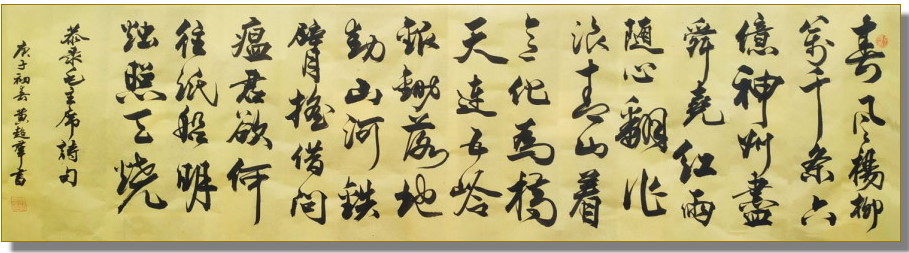 春风楊柳
萬千条六
億神州盡
舜堯红雨
随心翻作
浪青山着
意化為橋
天连五岭
銀鋤落地
動山河鉄
臂摇借问
瘟君欲何
往纸船明
烛照天烧
恭录毛主席詩句
庚子初春黄超群書